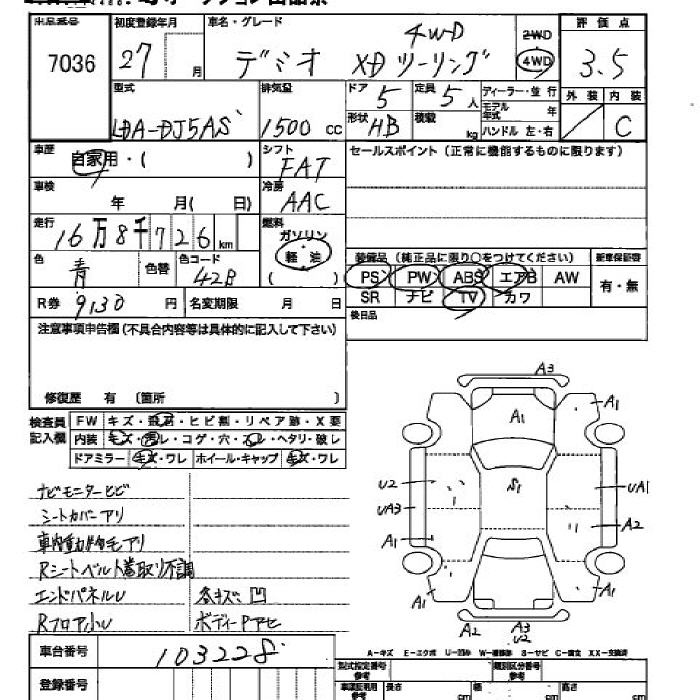 出品番号 初度登録年月 車名・グレード 2WD 評価点
7036 27 月 デミオ 4WD XDツーリング 4WD 3.5
型式 排気量 ドア 5 定員 5人 ディーラー・並行 外装 内装
LDA-DJ5AS 1500 cc 形状 HB 積載 kg モデル年式 年 C
ハンドル 左・右
車歴 自家用・( ) シフト FAT セールスポイント(正常に機能するものに限ります)
車検 年 月( 日) 冷房 AAC
走行 16万8千726km 燃料 ガソリン 軽油 ( )
色 青 色替 色コード 42B
装備品(純正品に限り○をつけてください) 新車保証書
PS PW ABS エアB AW 有・無
SR ナビ TV カワ
R券 9130 円 名変期限 月 日 後日品
注意事項申告欄(不具合内容等は具体的に記入して下さい)
修復歴 有 〔箇所 〕
検査員記入欄
FW キズ・飛石・ヒビ割・リペア跡・X要
内装 キズ・汚レ・コゲ・穴・スレ・ヘタリ・破レ
ドアミラー キズ・ワレ ホイール・キャップ キズ・ワレ
ナビモニターヒビ
シートカバーアリ
車内動物毛アリ
Rシートベルト巻取り不調
エンドパネルU 各キズ凹
Rフロア小U ボディーPサビ
A3
A1 A1
U2 S1 UA1
UA3 A2
A1
A1 A1
A2 A3 U2
A-キズ E-エクボ U-凹ミ W-補修跡 S-サビ C-腐食 XX-交換済
車台番号 103228
登録番号
型式指定番号 参考 類別区分番号 参考
車検証利用 参考 長さ cm 幅 cm 高さ cm